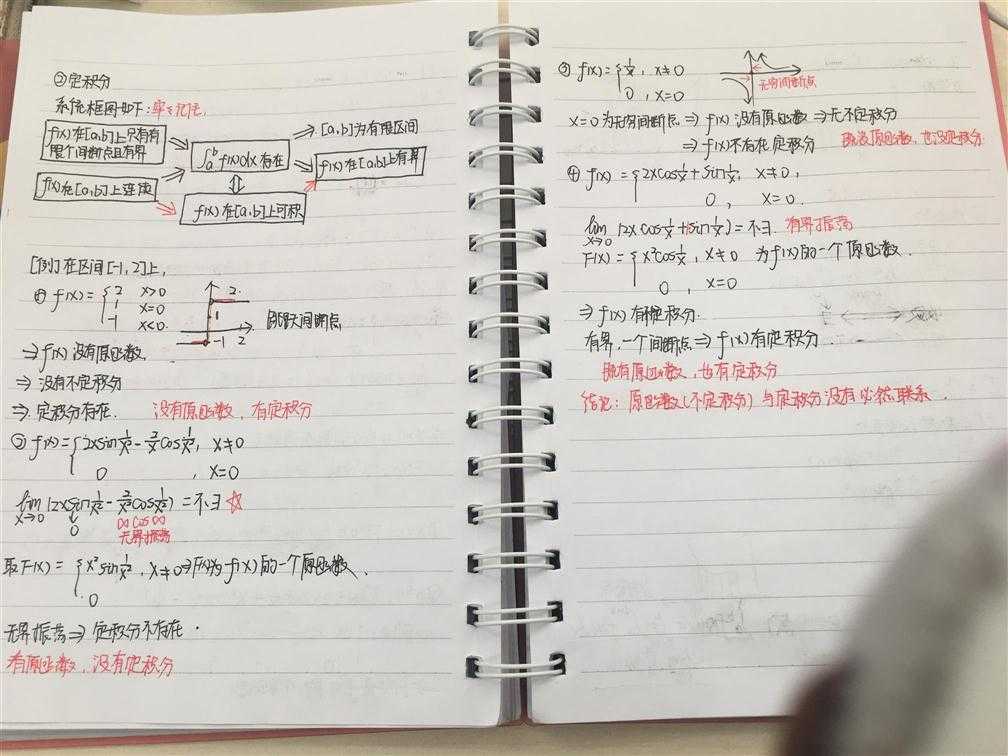 ②定积分
系统框图如下：牢牢记住.
f(x)在[a,b]上只有有限个间断点且有界
f(x)在[a,b]上连续
∫ₐᵇ f(x)dx存在
f(x)在[a,b]上可积
⇒ [a,b]为有限区间
f(x)在[a,b]上有界
[例]在区间[-1,2]上,
① f(x)= { 2 x>0
1 x=0
-1 x<0.
2.
1
-1 2
跳跃间断点
⇒ f(x)没有原函数.
⇒ 没有不定积分
⇒ 定积分存在. 没有原函数，有定积分
② f(x)= { 2xsin 1/x² - 2/x cos 1/x², x≠0
0 , x=0
lim x→0 (2xsin 1/x² - 2/x² cos 1/x²) = 不∃ ☆
0
∞ cos ∞
无界振荡
取F(x)= { x² sin 1/x², x≠0 ⇒ F(x)为f(x)的一个原函数.
0
无界振荡⇒ 定积分不存在.
有原函数，没有定积分
③ f(x)= { 1/x, x≠0
0, x=0
无穷间断点
x=0为无穷间断点 ⇒ f(x)没有原函数 ⇒ 无不定积分
⇒ f(x)不存在定积分 既没原函数，也没定积分
④ f(x)= { 2xcos 1/x + sin 1/x, x≠0,
0, x=0.
lim x→0 (2x cos 1/x + sin 1/x) = 不∃. 有界振荡
F(x)= { x² cos 1/x, x≠0 为f(x)的一个原函数.
0, x=0
⇒ f(x)有不定积分.
有界，一个间断点⇒ f(x)有定积分
既有原函数，也有定积分
结论：原函数(不定积分)与定积分没有必然联系.